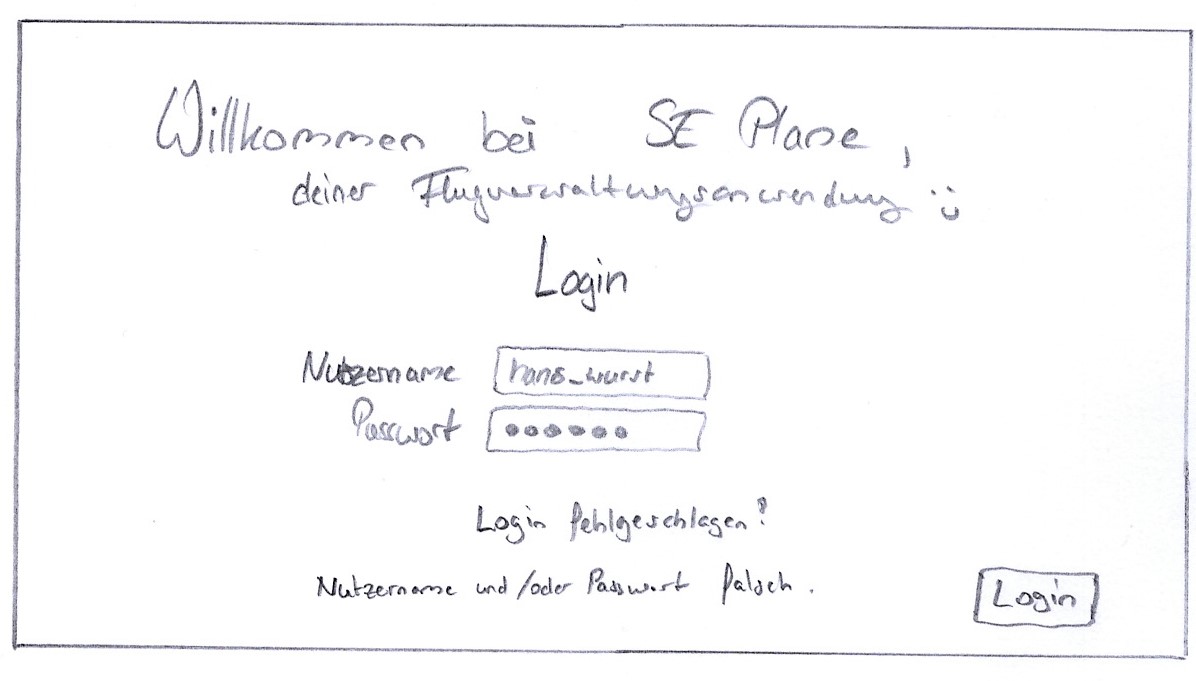 Willkommen bei SE Plane,
deiner Flugverwaltungsanwendung :)
Login
Nutzername hans_wurst
Passwort ••••••
Login fehlgeschlagen!
Nutzername und/oder Passwort falsch.
Login